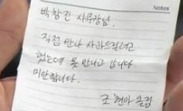 박창진 사무장님.
직접 만나 사과드리려고
했는데 못 만나고 갑니다
미안합니다.
조현아 올림